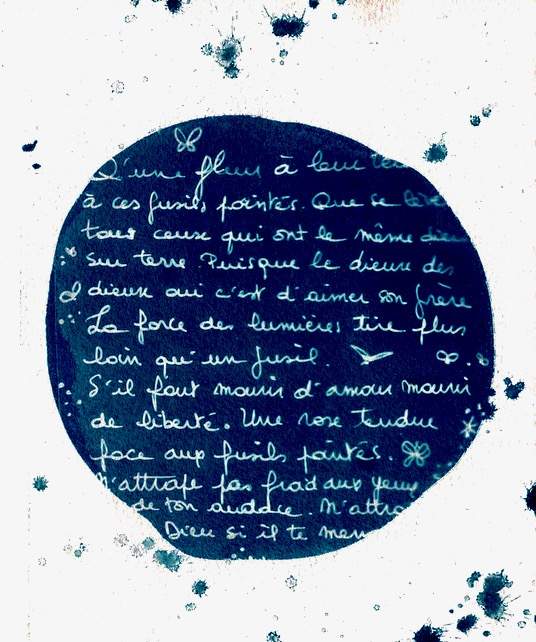 Qu'une fleur à leur
à ces fusils pointés. Que se
tous ceux qui ont le même dieu
sur terre. Puisque le dieux des
dieux oui c'est d'aimer son frère
La force des lumières tire plus
loin qu'un fusil.
S'il faut mourir d'amour mourir
de liberté. Une rose tendue
face aux fusils pointés.
N'attrape pas froid aux yeux
de ton audace. N'attra
Dieu si il te